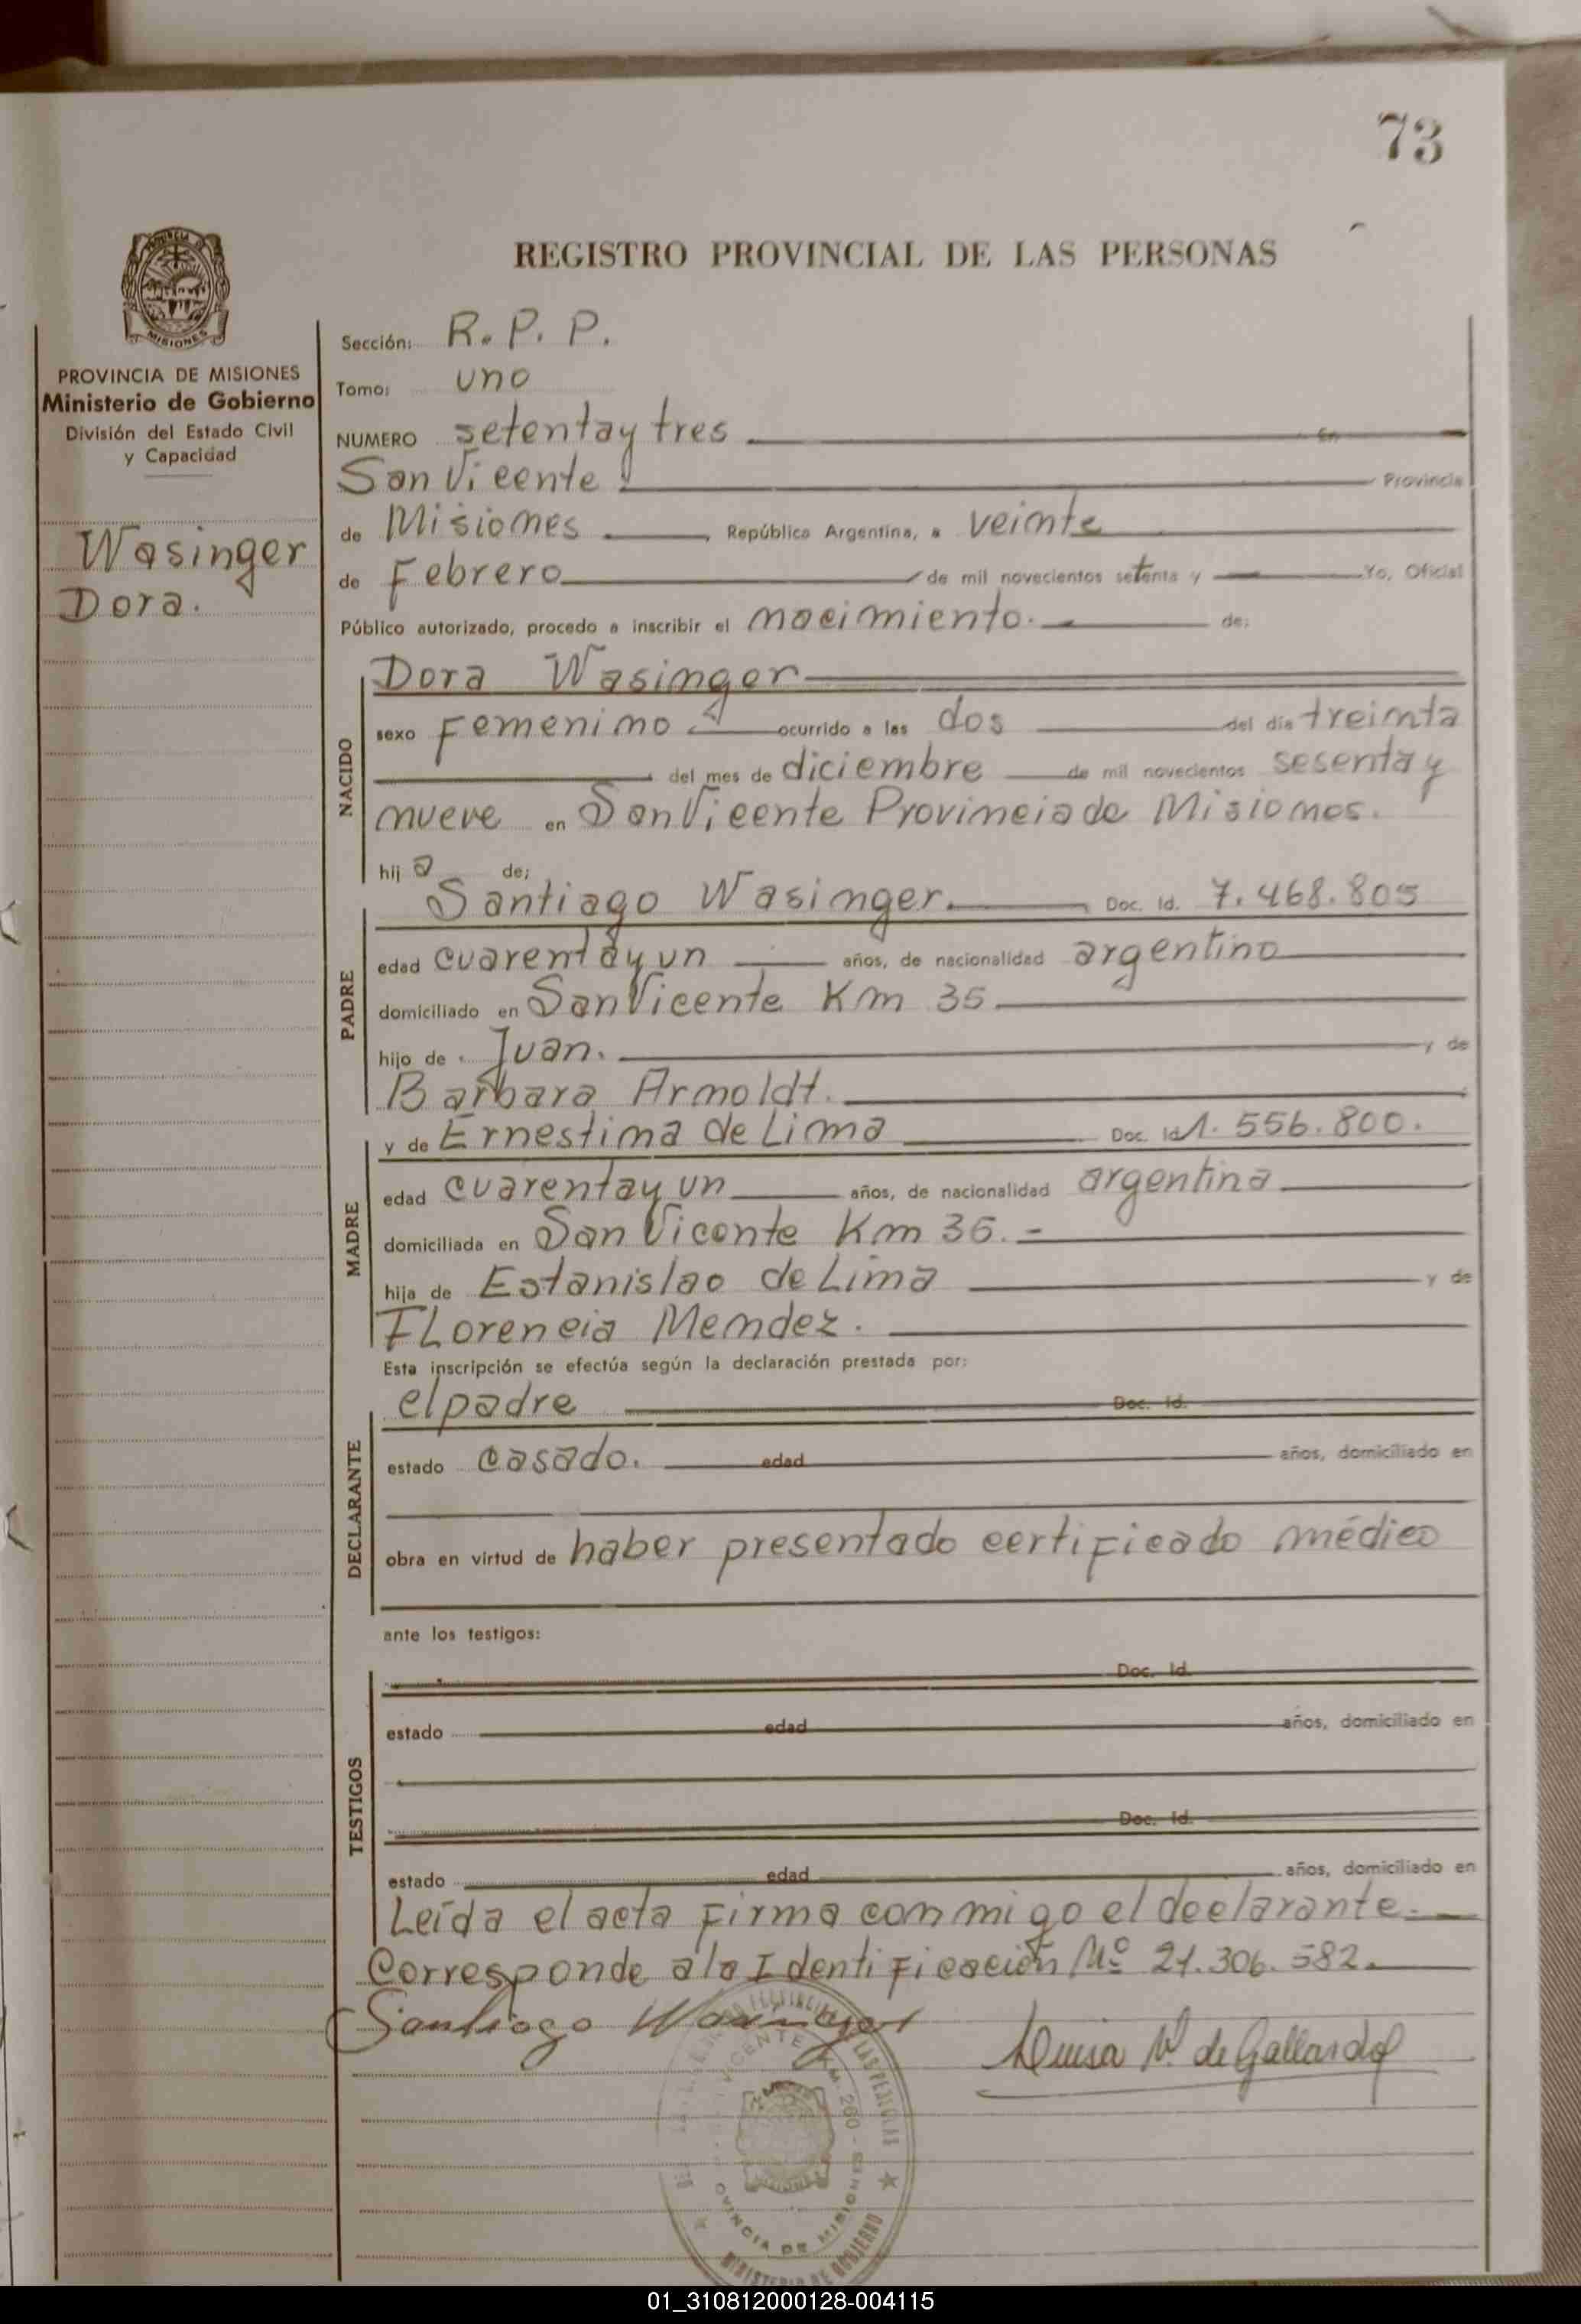 73
REGISTRO PROVINCIAL DE LAS PERSONAS
MISIONES
PROVINCIA DE MISIONES
Ministerio de Gobierno
División del Estado Civil
y Capacidad
Wasinger
Dora.
Sección: R. P. P.
Tomo: uno
NUMERO setenta y tres En
San Vicente Provincia
de Misiones, República Argentina, a veinte
de Febrero de mil novecientos setenta y Yo, Oficial
Público autorizado, procedo a inscribir el nacimiento. de:
NACIDO
Dora Wasinger
sexo Femenino ocurrido a las dos del día treinta
del mes de diciembre de mil novecientos sesenta y
nueve en San Vicente Provincia de Misiones.
hija de;
PADRE
Santiago Wasinger. Doc. Id. 7.468.805
edad cuarenta y un años, de nacionalidad argentino
domiciliado en San Vicente Km 35
hijo de Juan. y de
Barbara Arnoldt.
MADRE
y de Ernestina de Lima Doc. Id 1.556.800.
edad cuarenta y un años, de nacionalidad argentina
domiciliada en San Vicente Km 35. -
hija de Estanislao de Lima y de
FLorencia Mendez.
Esta inscripción se efectúa según la declaración prestada por:
DECLARANTE
el padre Doc. Id.
estado casado. edad años, domiciliado en
obra en virtud de haber presentado certificado médico
ante los testigos:
TESTIGOS
Doc. Id.
estado edad años, domiciliado en
Doc. Id.
estado edad años, domiciliado en
Leída el acta firma conmigo el declarante.
Corresponde a la Identificación Nº 21.306.582.
Santiago Wasinger
Luisa V. de Gallardo
VICENTE KM. 260
PROVINCIA DE MISIONES
MINISTERIO DE GOBIERNO
01_310812000128-004115